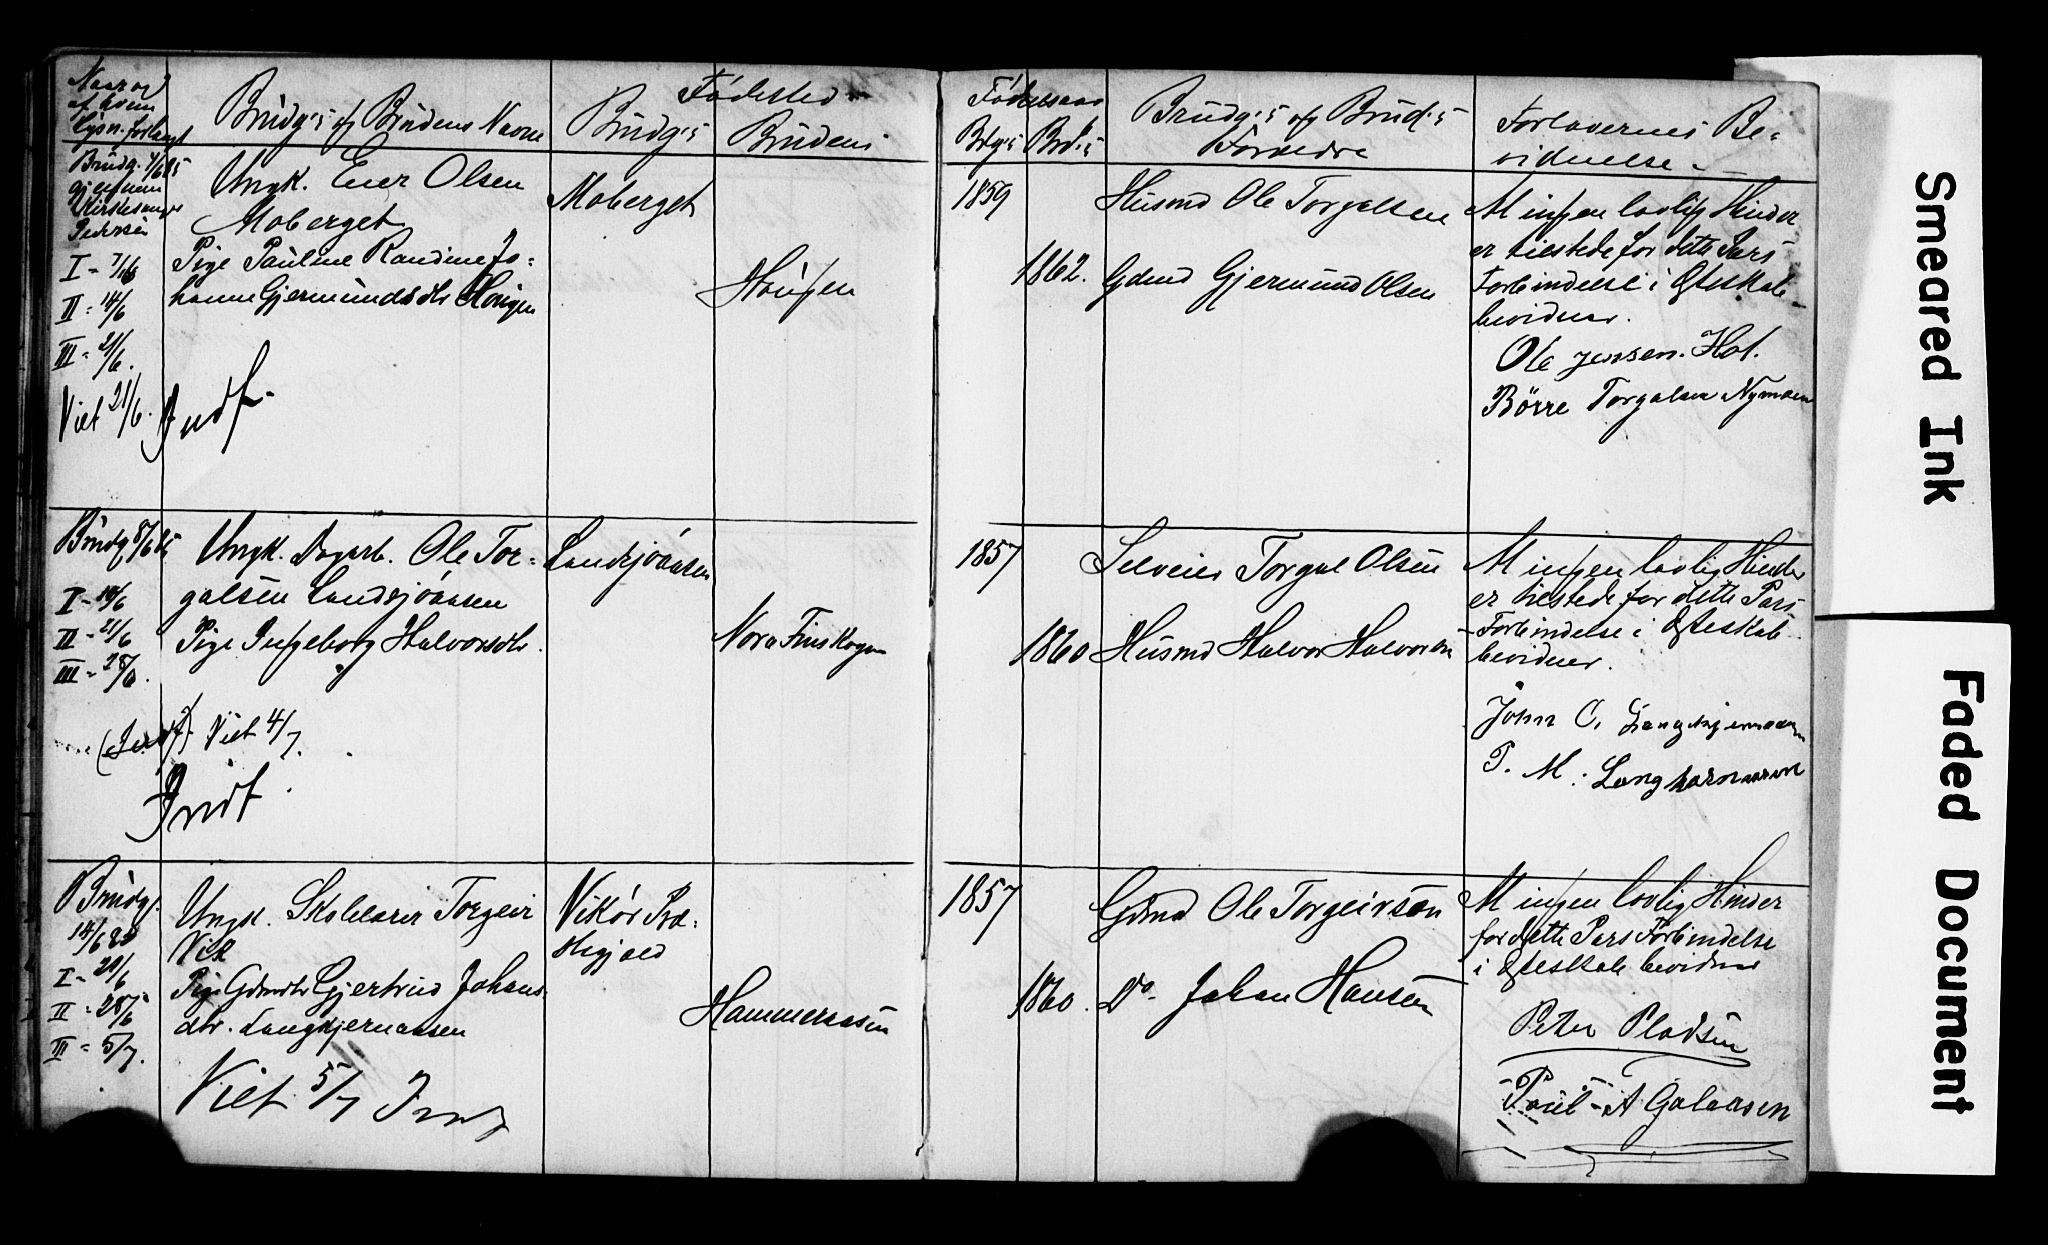 Naar og
af hvem
lysn. forlangt
Brudg's og Brudens Navne
Fødested
Brudg's
Brudens
Fødelsesaar
Brdg's Brd's
Brudg's og Brud's
Forældre
Forlovernes Be-
vidnelse
Brudg. 4/6 85
gjennem
Kirkesanger
Pedersen
I - 7/6
II - 14/6
III - 21/6.
Viet 21/6. Indf.
Ungk. Ener Olsen
Moberget
Pige Pauline Randine Jo-
hanne Gjermundsdtr Haugen
Moberget
Haugen
1859
1862.
Husmd Ole Torgalsen
Gdmd Gjermund Olsen
At ingen lovlig Hinder
er tilstede for dette Pars
Forbindelse i Ægteskab
bevidner.
Ole Jensen Hol.
Börre Torgalsen Nymoen
Brudg 8/6 85
I - 14/6
II - 21/6
III - 28/6.
(Indf). Viet 4/7.
Indf.
Ungk. Dagarb. Ole Tor-
galsen Landsjöaasen
Pige Ingeborg Halvorsdtr.
Landsjöaasen
Nora Finskogen
1857
1860
Selveier Torgal Olsen
Husmd Halvor Halvorsen
At ingen lovlig Hinder
er tilstede for dette Pars
Forbindelse i Ægteskab
bevidner.
John O. Langkjernaasen
P. M. Langkjernaasen
Brudg.
14/6 85
I - 21/6
II - 28/6
III - 5/7.
Ungk. Skolelærer Torgeir
Vik
Pige Gdmdtr Gjertrud Johans-
dtr. Langkjernaasen
Viet 5/7 Indf
Vikör Præ-
stegjæld
Hammeraasen
1857
1860.
Gdmd Ole Torgeirson
Do. Johan Hansen
At ingen lovlig Hinder
for dette Pars Forbindelse
i Ægteskab bevidner
Peter Pladsen
Paul A Galaasen
Smeared Ink
Faded Document